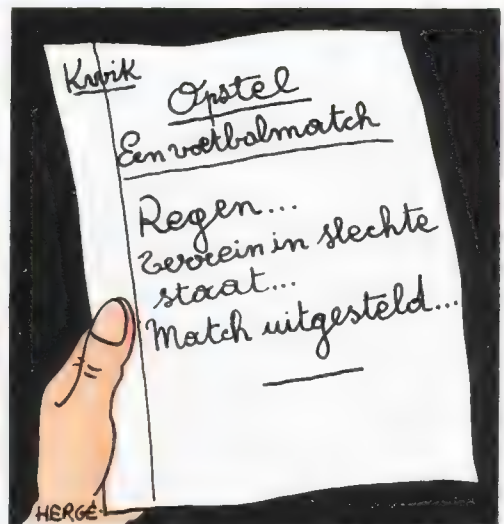 Kwik
Opstel
Een voetbalmatch
Regen...
Terrein in slechte
staat...
Match uitgesteld...
HERGÉ